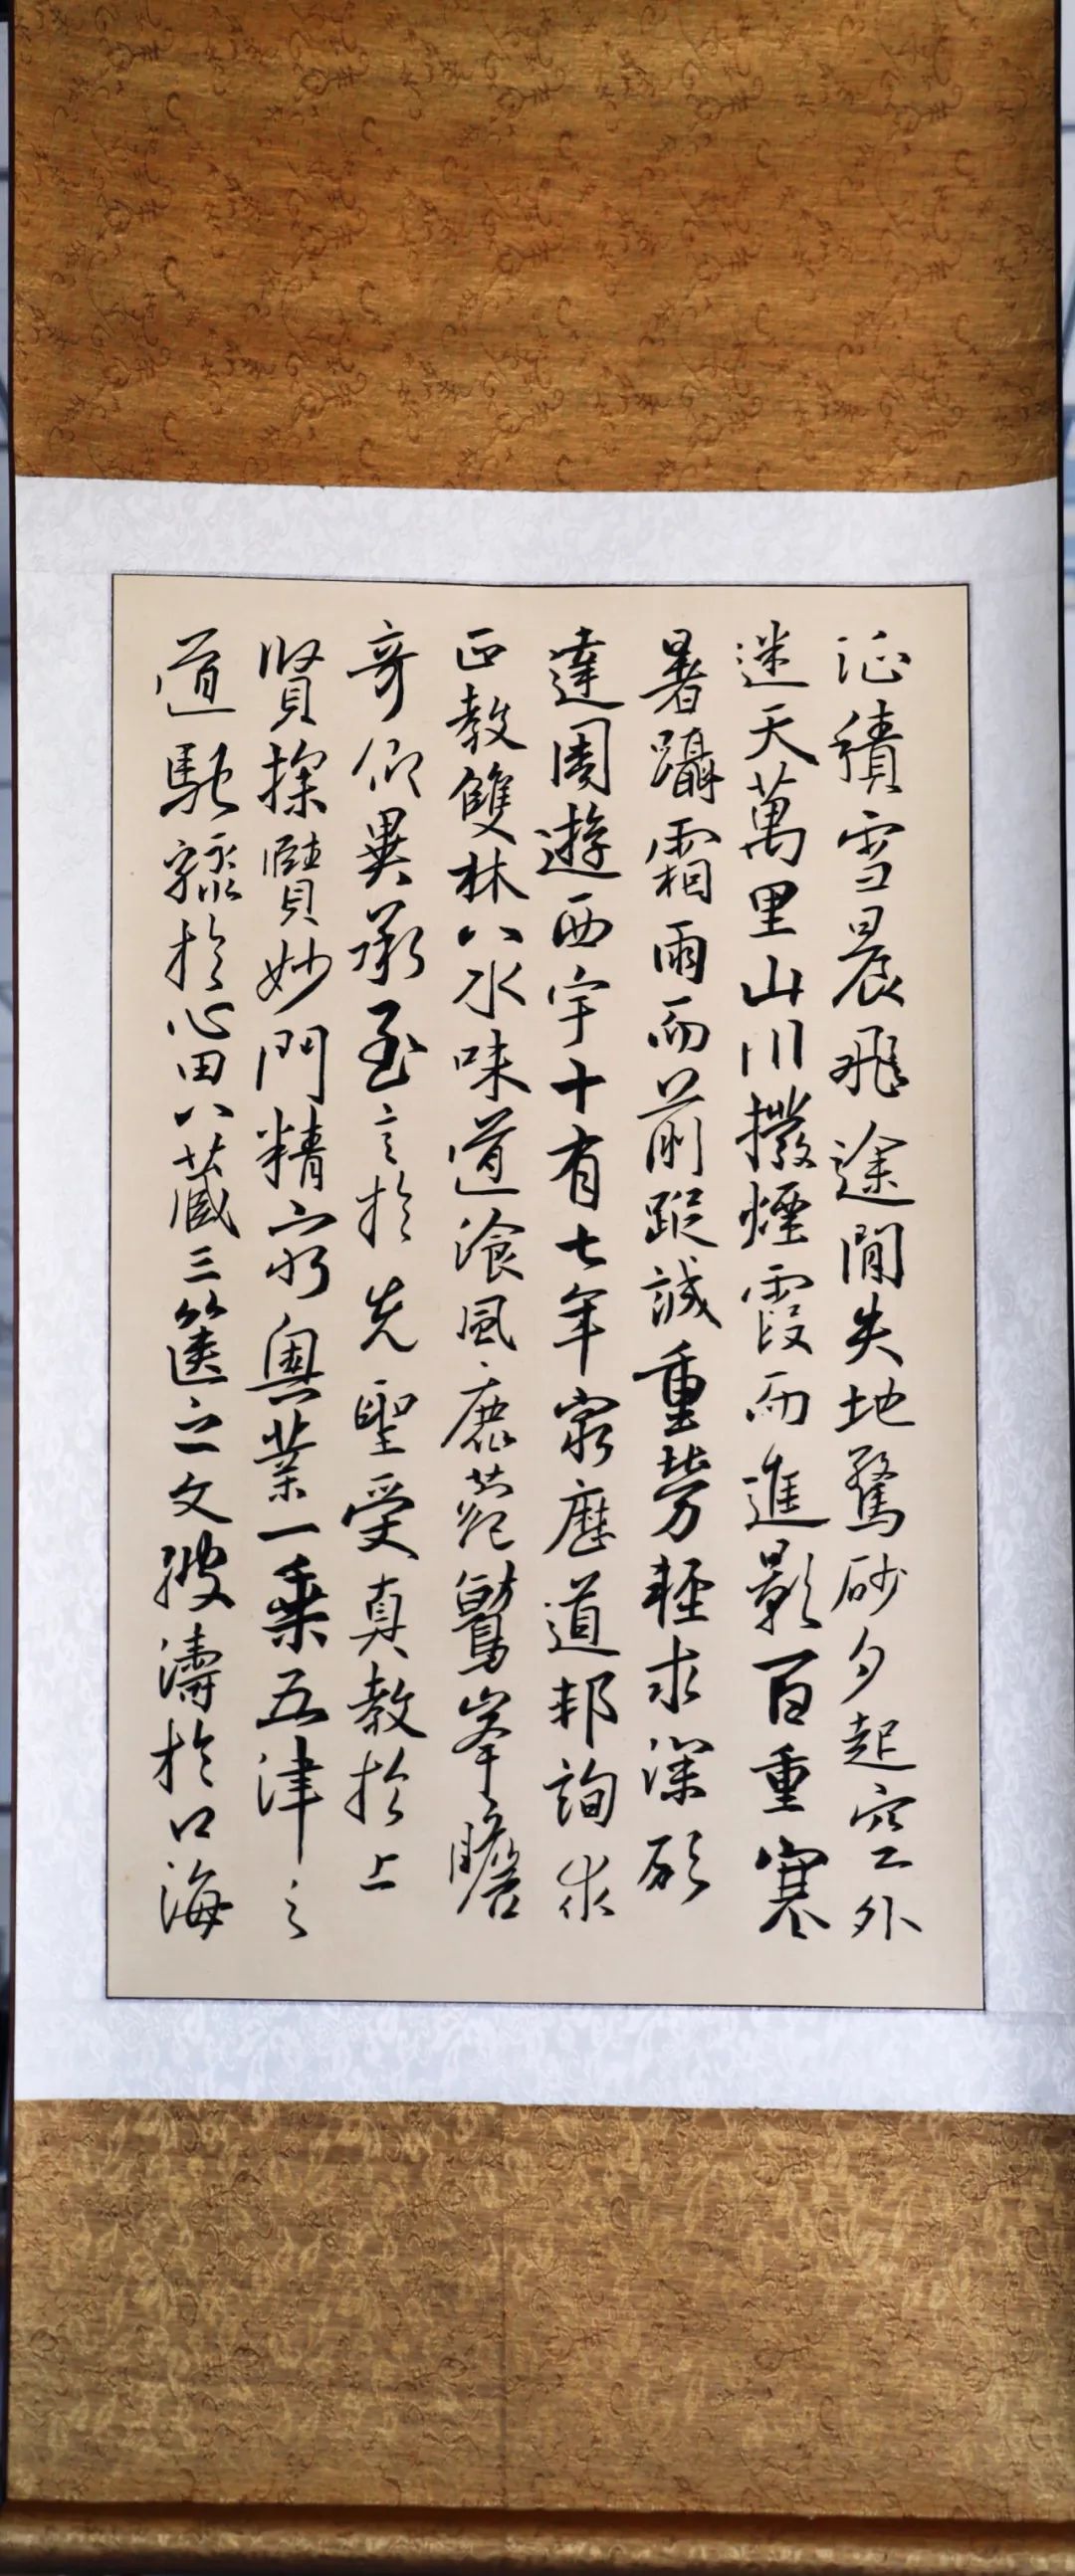 征積雪晨飛途閒失地驚砂夕起空外
迷天萬里山川撥煙霞而進影百重寒
暑躡霜雨而前蹤誠重勞輕求深願
達周遊西宇十有七年窮歷道邦詢求
正教雙林八水味道湌風鹿菀鷲峯瞻
奇仰異承至言於先聖受真教於上
賢探賾妙門精窮奧業一乘五津之
道馳驟於心田八藏三篋之文波濤於口海